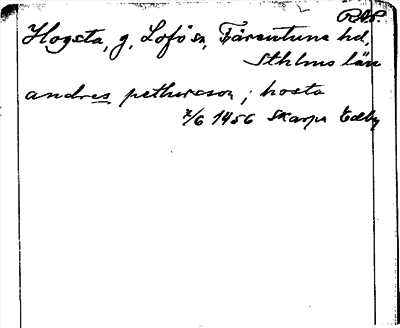 RAP.
Hogsta, g, Lofö sn, Färentuna hd,
Sthlms län
andres pethersson ; hosta
7/6 1456 Skarpa Edby